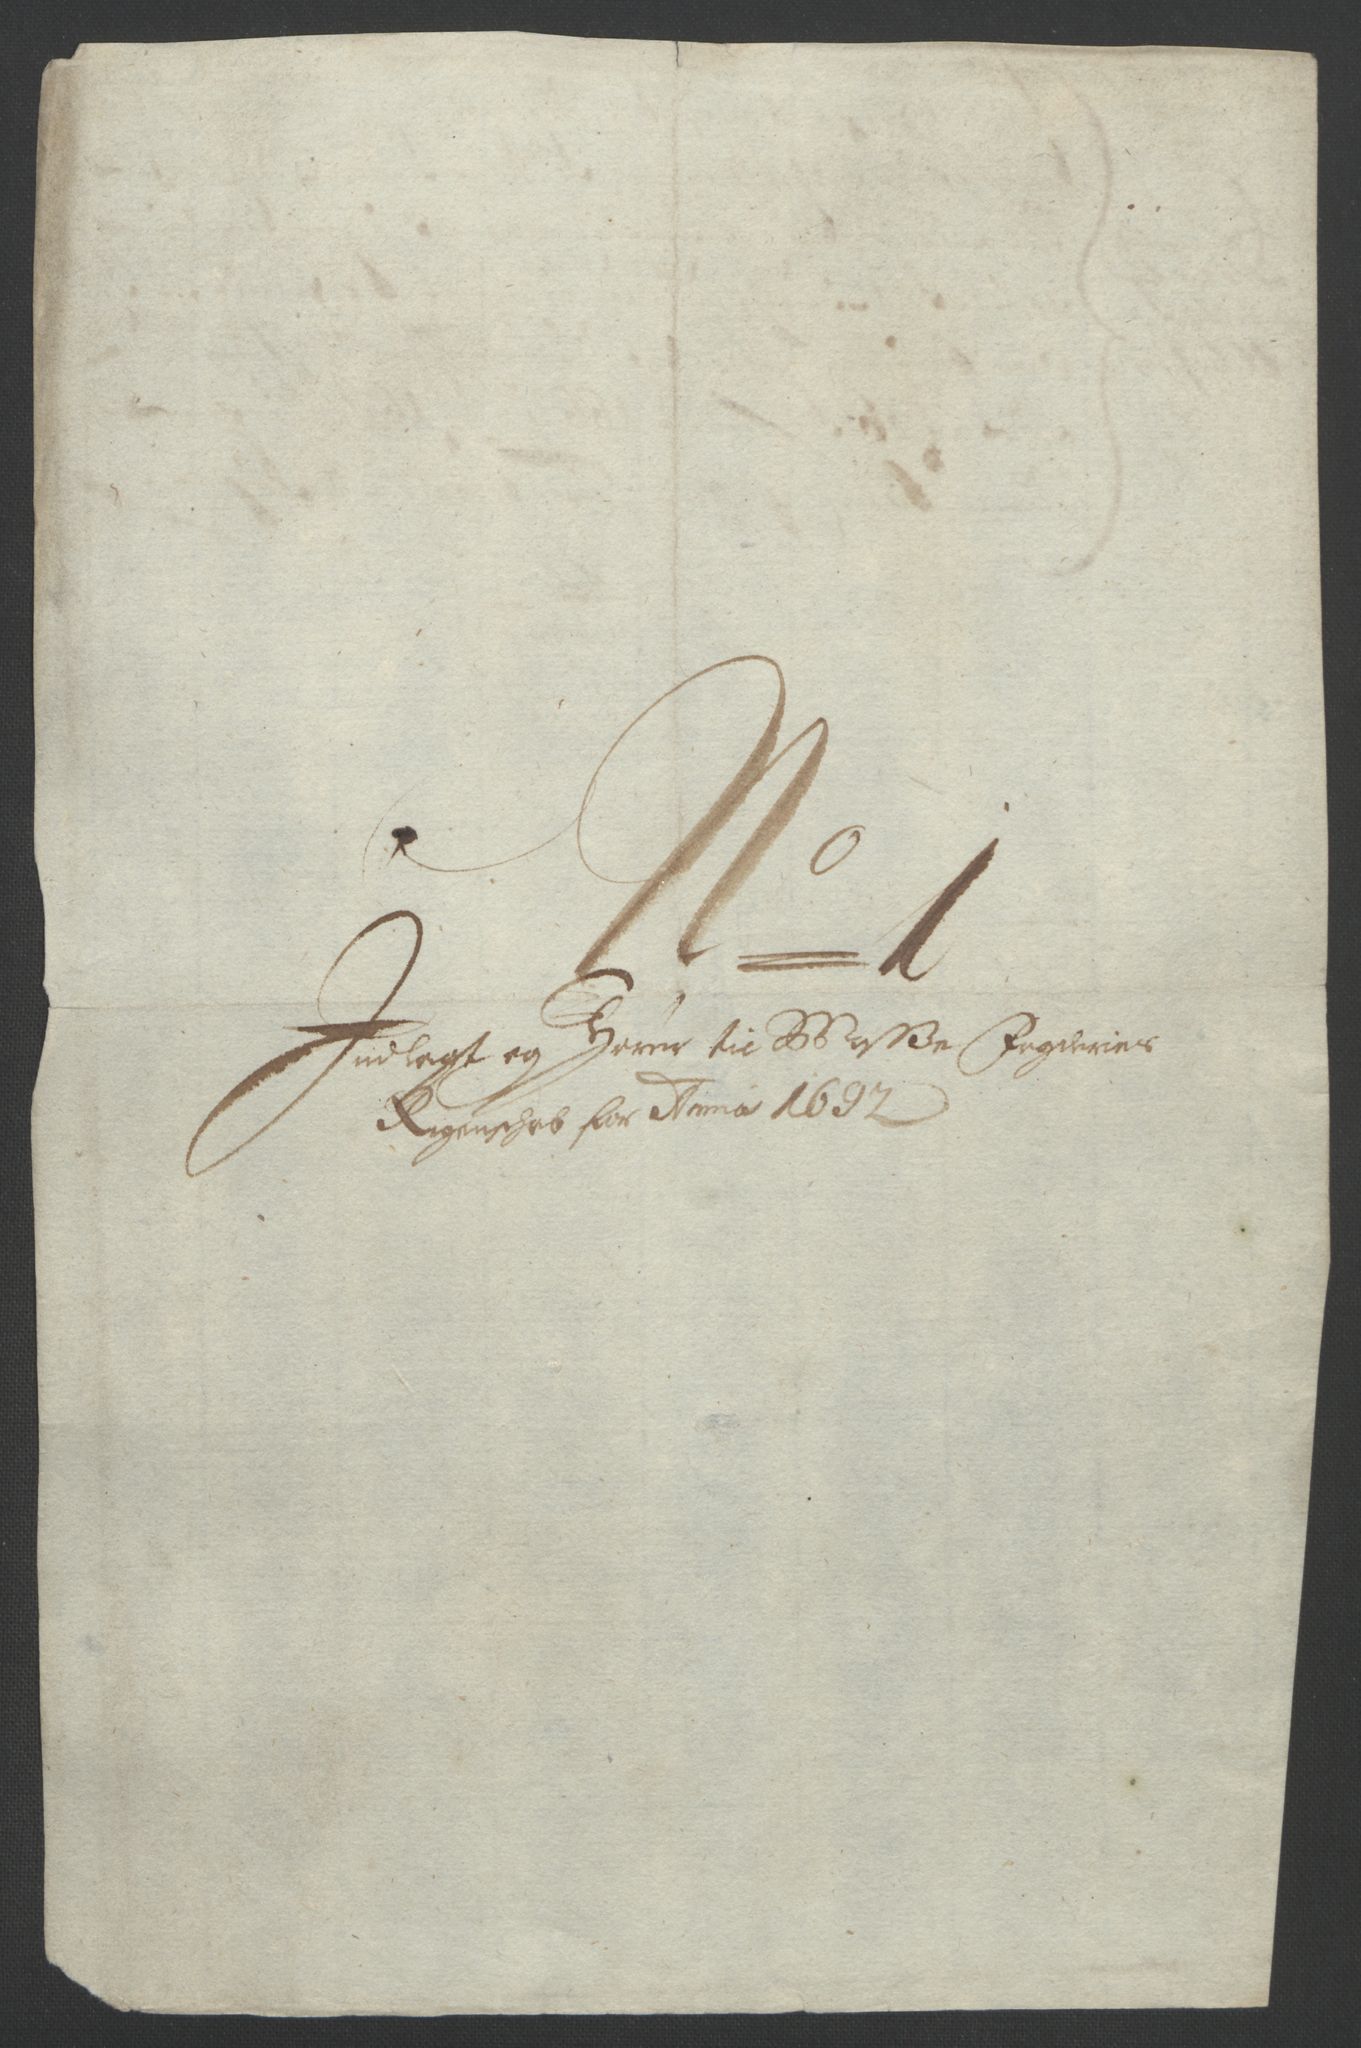 No 1
Indlagt og Hører til Mosse Fogderies
Regenschab for Anno 1692